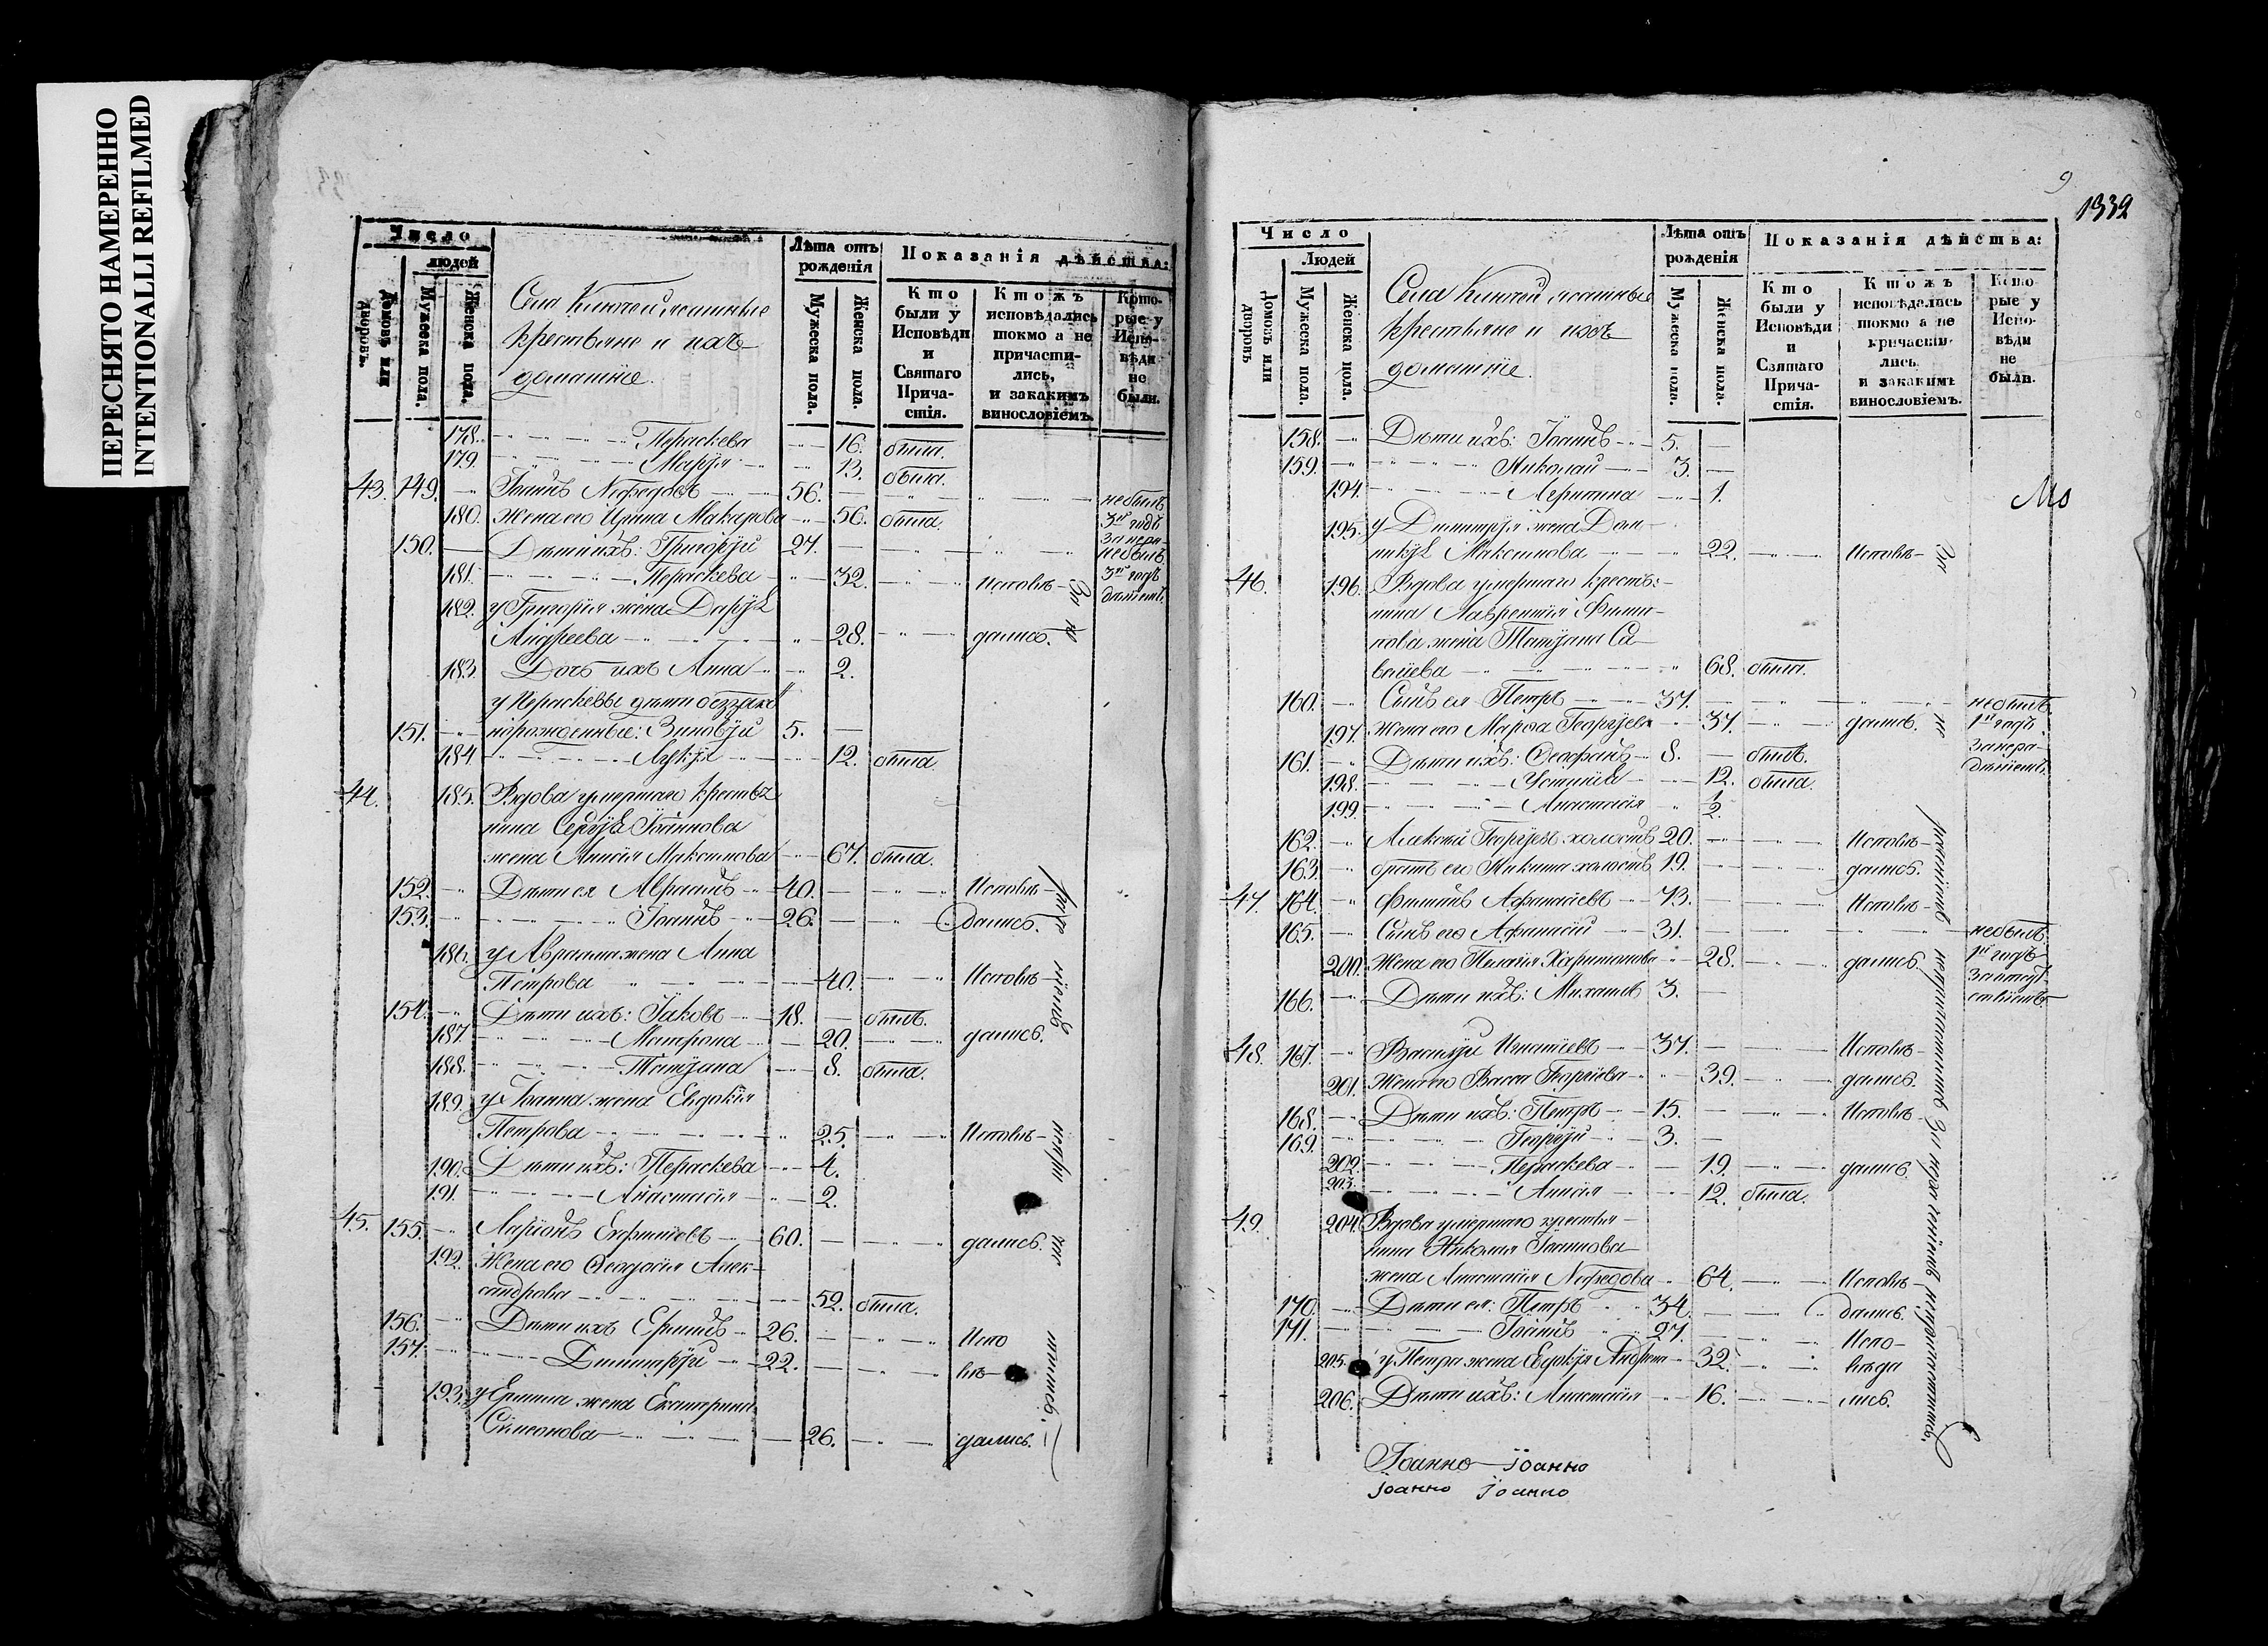 ПЕРЕСНЯТО НАМЕРЕННО
INTENTIONALLI REFILMED
Число
людей
Домовъ или дворовъ.
Мужеска пола.
Женска пола.
Села Ключей ясашные
крестьяне и ихъ
домашние.
Лѣта отъ рожденія
Мужеска пола.
Женска пола.
Показанія дѣйства:
Кто были у Исповѣди и Святаго Причастія.
Ктожъ исповѣдались токмо а не причастились, и закакимъ винословіемъ.
Которые у Исповѣди не были.
178. Пераскева 16. была.
179. Марія 13. была.
43. 149. Іоаннъ Нефедовъ 56. небылъ
180. Жена его Ирина Макарова 56. была. 3й годъ
150. Дѣти ихъ: Григорій 27. небылъ
181. Пераскева 32. Исповѣ- 3й годъ
182. у Григорія жена Дарья
Андреева 28. дались.
183. Дочь ихъ Анна 2.
у Пераскевы дѣти беззакон
норожденные: Зиновій
151. 5.
184 Лукія 12. была.
44. 185. Вдова умершаго крестья
нина Сергѣя Іоаннова
жена Анисія Максимова 67. была.
152. Дѣти ея Авраамъ 40. Исповѣ-
153. Іоаннъ 26. дались.
186. у Авраама жена Анна
Петрова 40. Исповѣ-
154. Дѣти ихъ: Іаковъ 18. былъ.
187. Матрона 20. дались.
188. Татіана 8. была.
189. у Іоанна жена Евдокія
Петрова 25. Исповѣ-
190. Дѣти ихъ: Пераскева 4.
191. Анастасія 2.
45. 155. Ларіонъ Евфимовъ 60. дались.
192. Жена его Ѳеодосія Алек-
сандрова 52. была.
156. Дѣти ихъ Ермилъ 26. Испо
157. Димитрій 22. вѣ-
193. у Ермила жена Екатерина
Симеонова 26. дались.
9
1332
Число
Людей
Домовъ или дворовъ
Мужеска пола.
Женска пола.
Села Ключей ясашные
крестьяне и ихъ
домашние.
Лѣта отъ рожденія
Мужеска пола.
Женска пола.
Показанія дѣйства:
Кто были у Исповѣди и Святаго Причастія.
Ктожъ исповѣдались токмо а не причастились. и закакимъ винословіемъ.
Которые у Исповѣди не были.
158. Дѣти ихъ: Іоаннъ 5.
159. Николай 3.
194. 1.
195. у Димитрія жена Дом-
никія Максимова 22. Исповѣ- За
46. 196. Вдова умершаго крестья-
нина Лаврентія Фили-
пова жена Татіана Са-
велиева 68. была.
160. Сынъ ея Петръ 37. небылъ
197. Жена его Марѳа Георгіева 37. дались. 1й годъ
161. Дѣти ихъ: Ѳеофанъ 8. былъ. Занера-
198. Устинія 12. была. дѣніемъ.
199. Анастасія 1/2.
162. Алексѣй Георгіевъ холостъ 20. Исповѣ-
163. братъ его Никита холостъ 19. дались.
47. 164. Филипъ Афанасіевъ 73. Исповѣ-
165. Сынъ его Афанасій 31. небылъ
200. Жена его Пелагія Харитонова 28. дались. 1й годъ
166. Дѣти ихъ: Михаилъ 3.
48. 167. Василій Игнатіевъ 37. Исповѣ-
201. Жена его Васса Георгіева 39. дались.
168. Дѣти ихъ: Петръ 15. Исповѣ-
169. Георгій 3.
202. Пераскева 19. дались.
203. Анисія 12. была.
49. 204. Вдова умершаго крестья-
нина Николая Іоаннова
жена Анастасія Нефедова 64. Исповѣ-
170. Дѣти ея: Петръ 34. дались.
171. Іоаннъ 27. Испо-
205. у Петра жена Евдокія Андреева 32. вѣда
206. Дѣти ихъ: Анастасія 16. лись.
Іоанно іоанно
іоанно іоанно